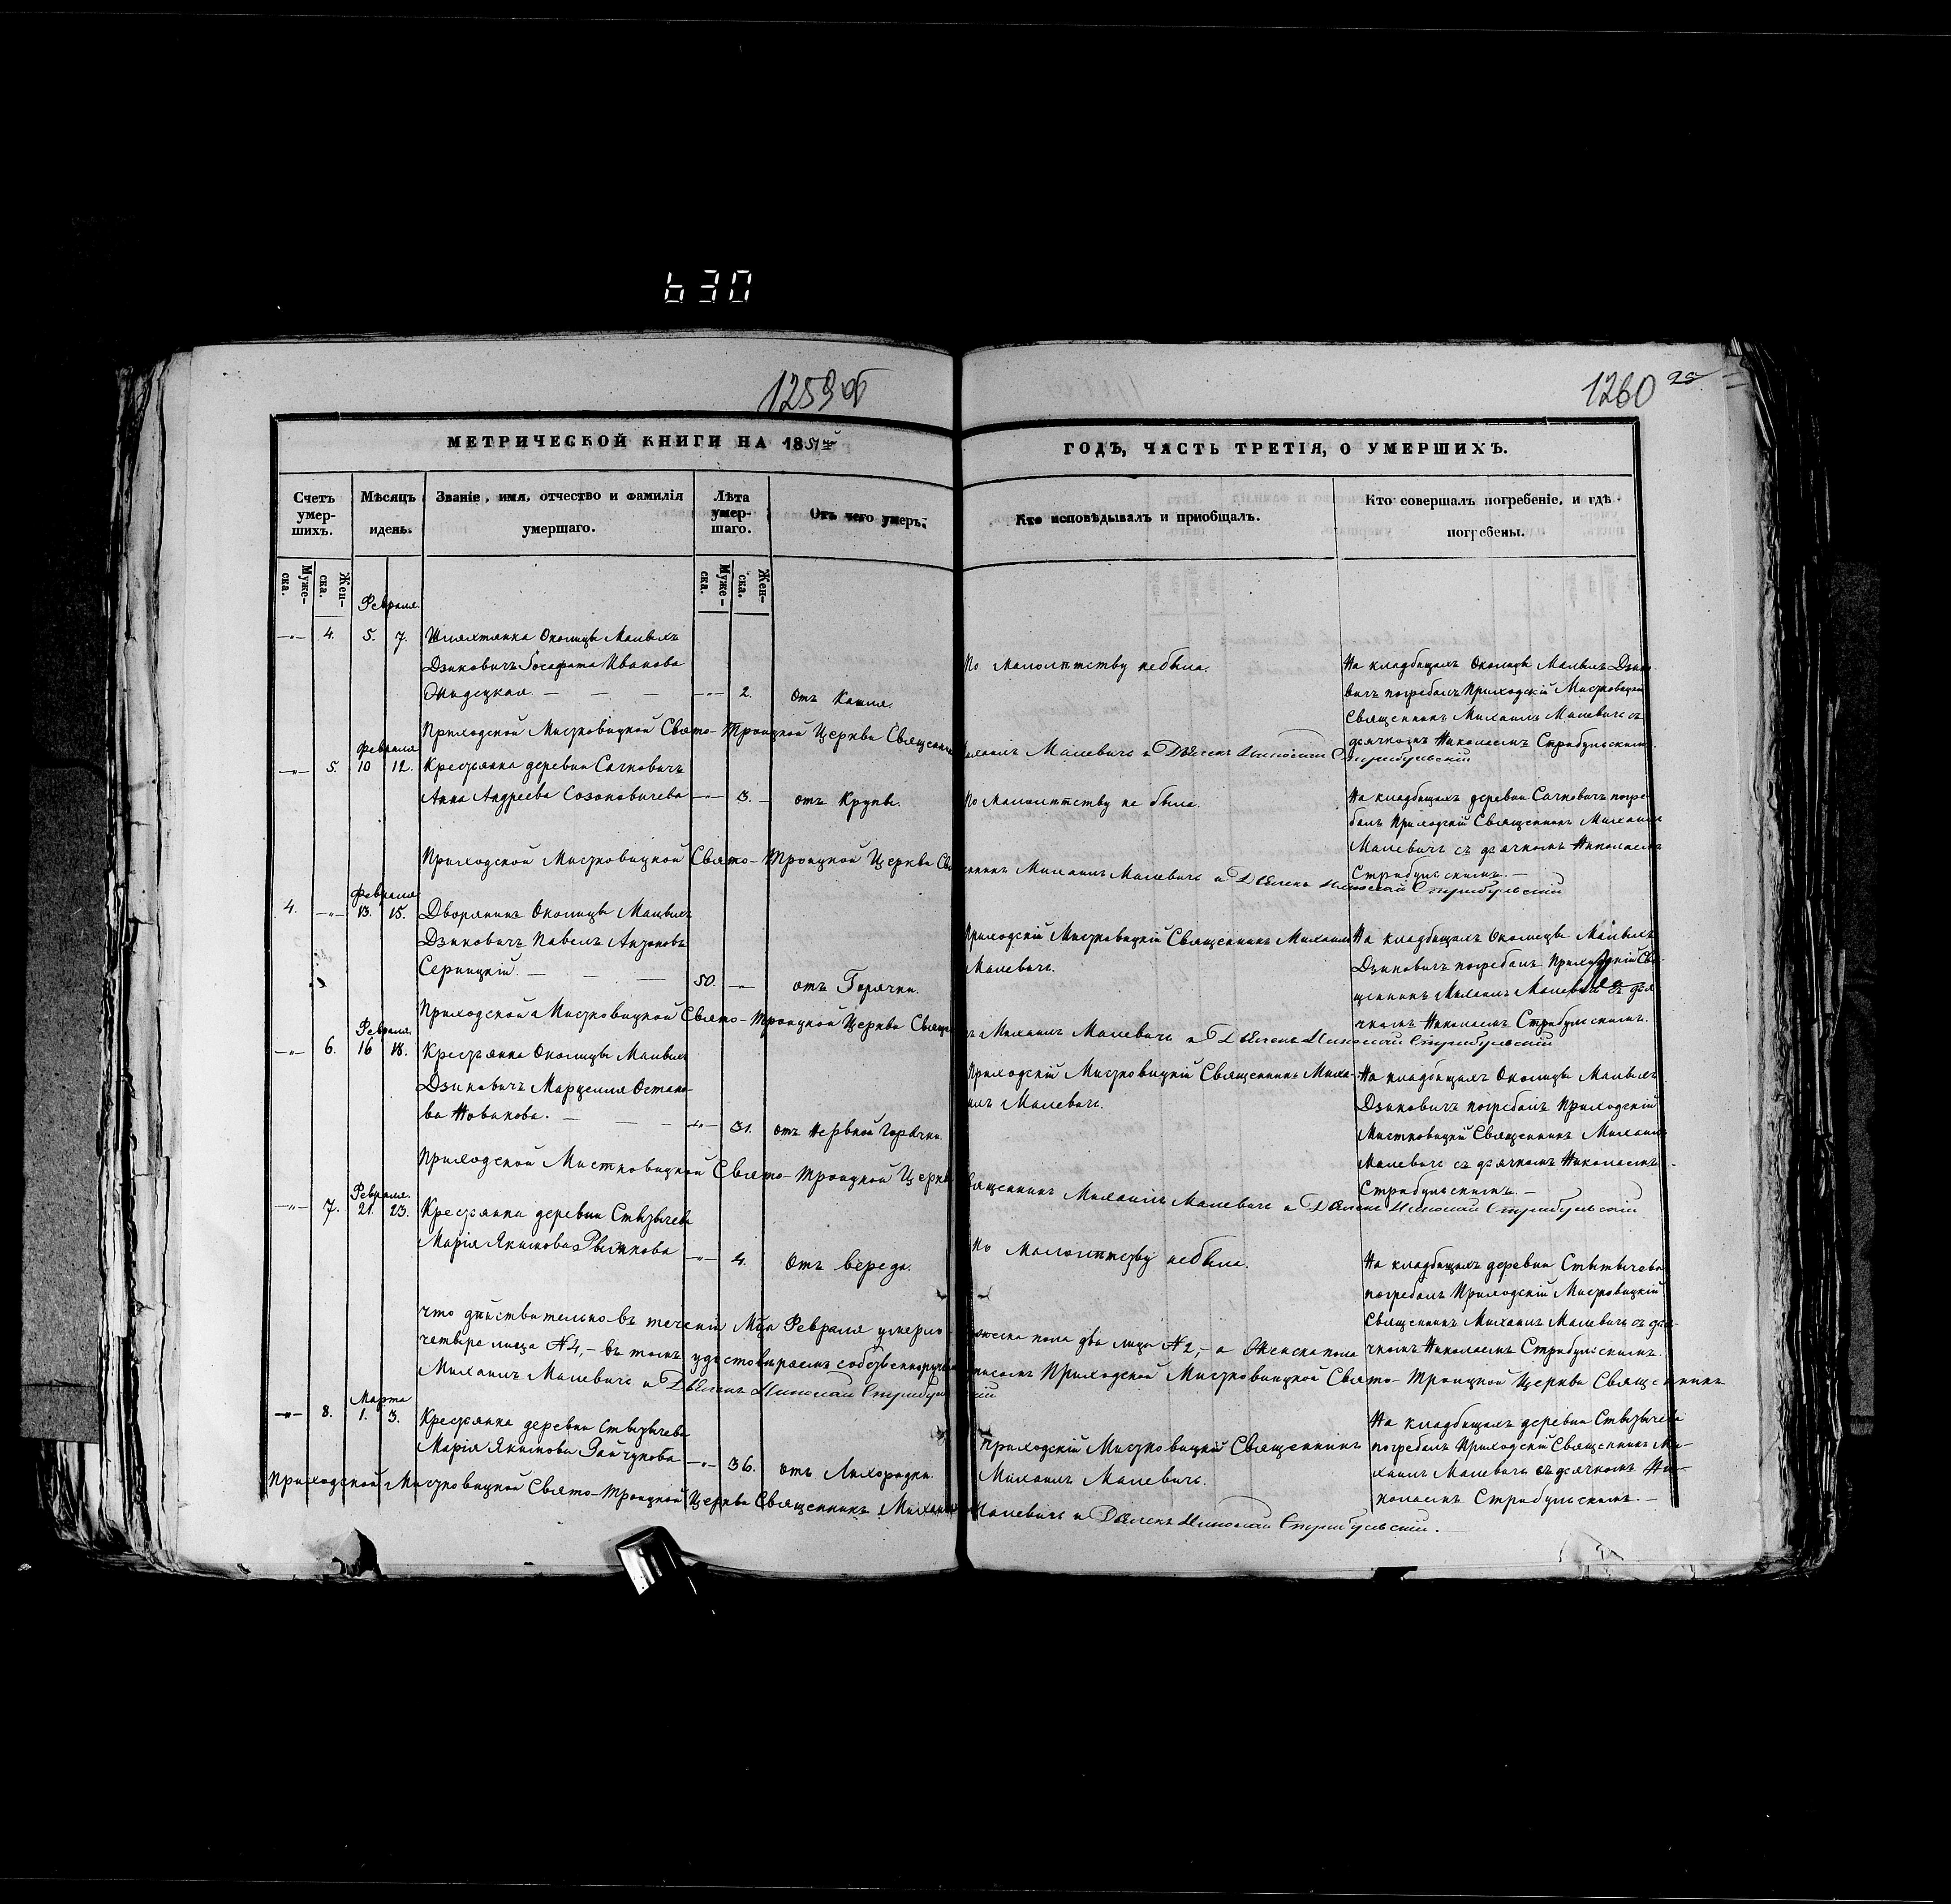 630
1259об
1260
МЕТРИЧЕСКОЙ КНИГИ НА 1851й
ГОДЪ, ЧАСТЬ ТРЕТІЯ, О УМЕРШИХЪ.
Счетъ умер-шихъ.
Мѣсяцъ и день.
Званіе, имя, отчество и фамилія умершаго.
Лѣта умер-шаго.
Отъ чего умеръ.
Кто исповѣдывалъ и приобщалъ.
Кто совершалъ погребеніе, и гдѣ погребены.
Муже-ска.
Жен-ска.
Муже-ска.
Жен-ска.
Февраля
4. 5. 7. Шляхтянка Околицы Малыхъ
Дзиковичъ Іосафата Иванова
2. Отъ Кашля.
По малолѣтству небыла.
На кладбищахъ Околицы Малыхъ Дзико-
вичъ погребалъ Приходскій Мистковицкій
Священникъ Михаилъ Малевичъ съ
дьячкомъ Николаемъ Стрибульскимъ.
Приходской Мистковицкой Свято-Троицкой Церкви Священникъ Михаилъ Малевичъ и Дьячекъ Николай Стрибульскій
Февраля
5. 10 12. Крестьянка деревни Сачковичъ
Анна Андреева Созоновичева 3. отъ Крупы.
По малолѣтству не была.
На кладбищахъ деревни Сачковичъ погре-
балъ Приходскій Священникъ Михаилъ
Малевичъ съ дьячкомъ Николаемъ
Стрибульскимъ.
Приходской Мистковицкой Свято-Троицкой Церкви Священникъ Михаилъ Малевичъ и Дьячекъ Николай Стрибульскій
Февраля
4. 13. 15. Дворянинъ Околицы Малыхъ
Дзиковичъ Павелъ Антоновъ
Серницкій. 50. отъ Горячки.
Приходскій Мистковицкій Священникъ Михаилъ
Малевичъ.
На кладбищахъ Околицы Малыхъ
Дзиковичъ погребалъ Приходскій Свя-
щенникъ Михаилъ Малевичъ съ дья
чкомъ Николаемъ Стрибульскимъ.
Приходской Мистковицкой Свято-Троицкой Церкви Священникъ Михаилъ Малевичъ и Дьячекъ Николай Стрибульскій
Февраля
6. 16 18. Крестьянка Околицы Малыхъ
Дзиковичъ Марцелля Остапо-
ва Новакова. 31. отъ Нервной Горячки.
Приходскій Мистковицкій Священникъ Миха-
илъ Малевичъ.
На кладбищахъ Околицы Малыхъ
Дзиковичъ погребалъ Приходскій
Мистковицкій Священникъ Михаилъ
Малевичъ съ дьячкомъ Николаемъ
Стрибульскимъ.
Приходской Мистковицкой Свято-Троицкой Церкви Священникъ Михаилъ Малевичъ и Дьячекъ Николай Стрибульскій
Февраля.
7. 21. 23. Крестьянка деревни Стытычева
Марія Якимова 4. Отъ вереда.
По малолѣтству небыла.
На кладбищахъ деревни Стытычева
погребалъ Приходскій Мистковицкій
Священникъ Михаилъ Малевичъ съ дья-
чкомъ Николаемъ Стрибульскимъ.
что дѣйствительно въ теченіи Мца Февраля умерло мужеска пола два лица № 2, а Женска пола
четыре лица № 4, въ томъ удостовѣряемъ собственноручнымъ подписомъ Приходской Мистковицкой Свято-Троицкой Церкви Священникъ
Михаилъ Малевичъ и Дьячекъ Николай Стрибульскій
Марта
8. 1. 3. Крестьянка деревни Стытычева
Марія Якимова Зайчукова 36. отъ Лихорадки.
Приходскій Мистковицкій Священникъ
Михаилъ Малевичъ.
На кладбищахъ деревни Стытычева
погребалъ Приходскій Священникъ Ми-
хаилъ Малевичъ съ дьячкомъ Ни-
колаемъ Стрибульскимъ.
Приходской Мистковицкой Свято-Троицкой Церкви Священникъ Михаилъ Малевичъ и Дьячекъ Николай Стрибульскій.